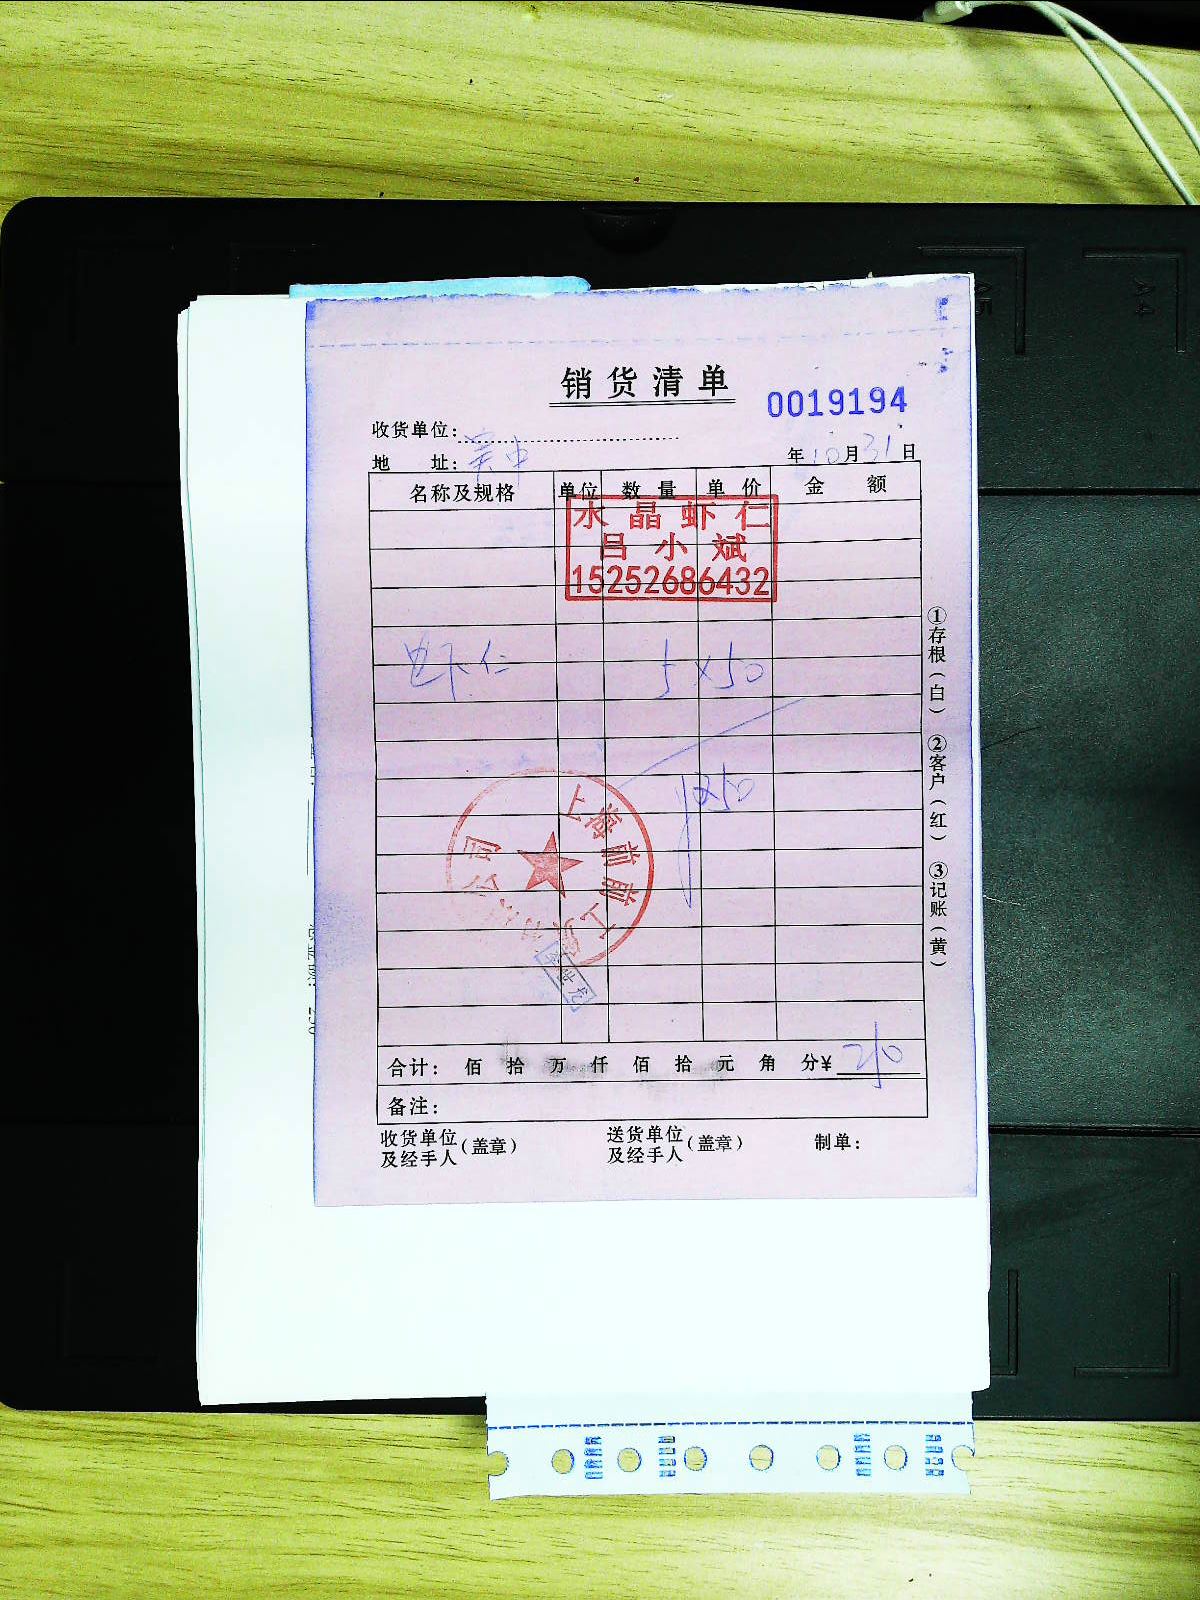 销货清单
0019194
收货单位:
地 址: 吴中
年10月31日
名称及规格 单位 数量 单价 金额
水晶虾仁
吕小斌
15252686432
虾仁 5×50
¥250
上海前前工贸有限公司
合计: 佰 拾 万 仟 佰 拾 元 角 分¥ 250
备注:
收货单位及经手人(盖章) 送货单位及经手人(盖章) 制单:
①存根(白) ②客户(红) ③记账(黄)
A4